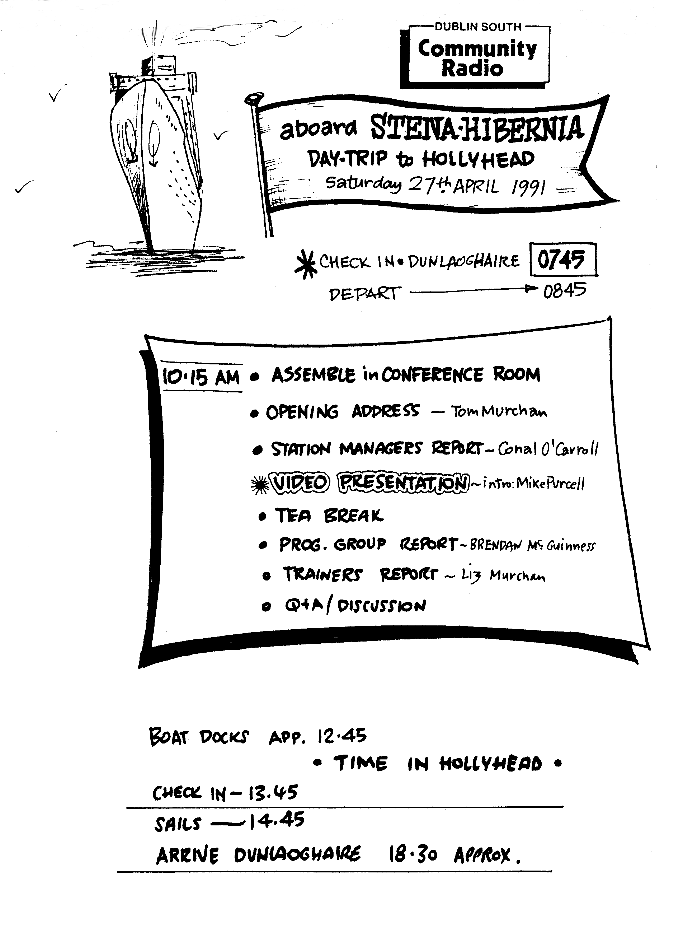 DUBLIN SOUTH
Community
Radio
aboard STENA·HIBERNIA
DAY-TRIP to HOLLYHEAD
Saturday 27th APRIL 1991
✱ CHECK IN • DUNLAOGHAIRE 0745
DEPART → 0845
10·15 AM • ASSEMBLE in CONFERENCE ROOM
• OPENING ADDRESS – Tom Murchan
• STATION MANAGERS REPORT – Conal O'Carroll
✱ VIDEO PRESENTATION ~ intro: Mike Purcell
• TEA BREAK
• PROG. GROUP REPORT ~ BRENDAN Mc Guinness
• TRAINERS REPORT ~ Liz Murchan
• Q+A / DISCUSSION
BOAT DOCKS APP. 12·45
• TIME IN HOLLYHEAD •
CHECK IN – 13.45
SAILS — 14.45
ARRIVE DUNLAOGHAIRE 18·30 APPROX.